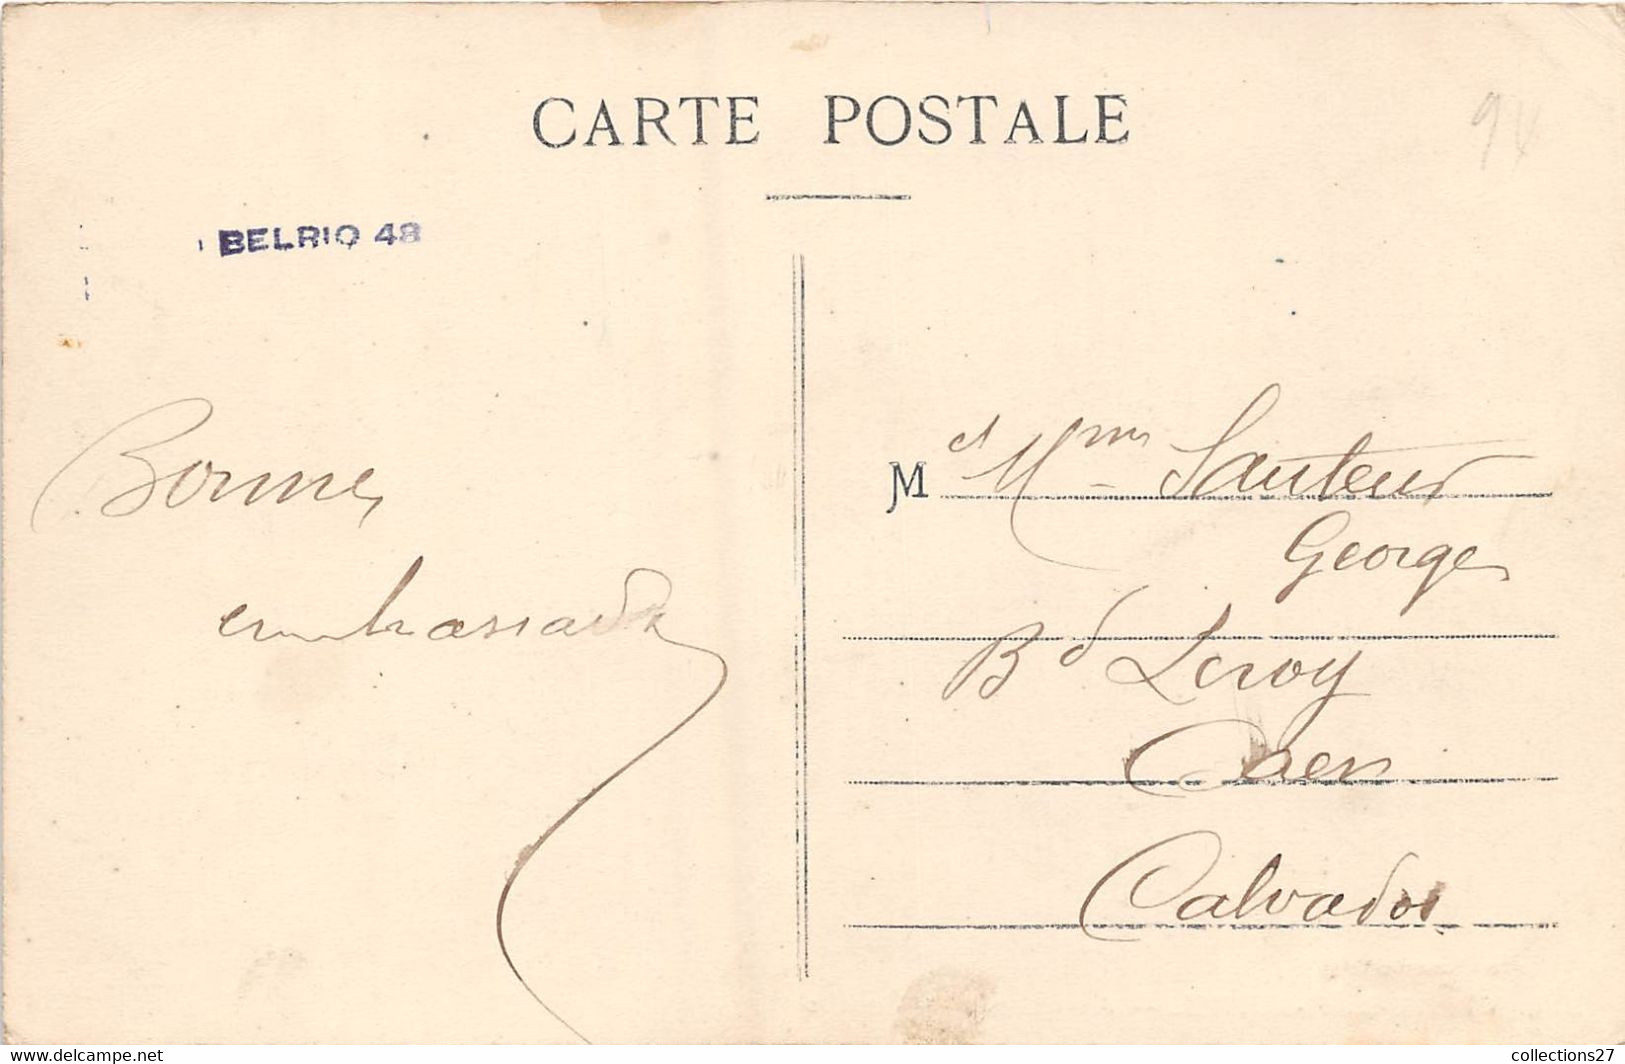 CARTE POSTALE
94
BELRIO 48
Bonnes
embrassades
M et Mme Sauteur
Georges
Bd Leroy
Caen
Calvados
www.delcampe.net
collections27